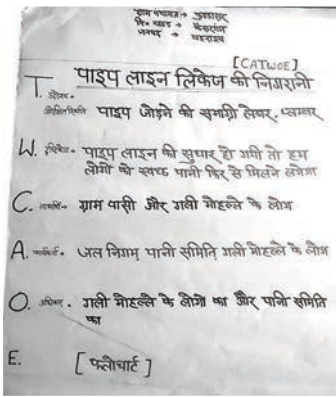 ग्राम पंचायत →
वि० खण्ड → कैसरगंज
जनपद → बहराइच
[CATWOE]
पाइप लाइन लिकेज की निगरानी
T.
पाइप जोड़ने की समाग्री लेबर, प्लम्बर
W. पाइप लाइन की सुधार हो गयी तो हम
लोगों को स्वच्छ पानी फिर से मिलने लगेगा
C. ग्राम वासी और गली मोहल्ले के लोग
A. जल निगम पानी समिति गली मोहल्ले के लोग
O. गली मोहल्ले के लोगो का और पानी समिति
का
E. [फ्लोचार्ट]